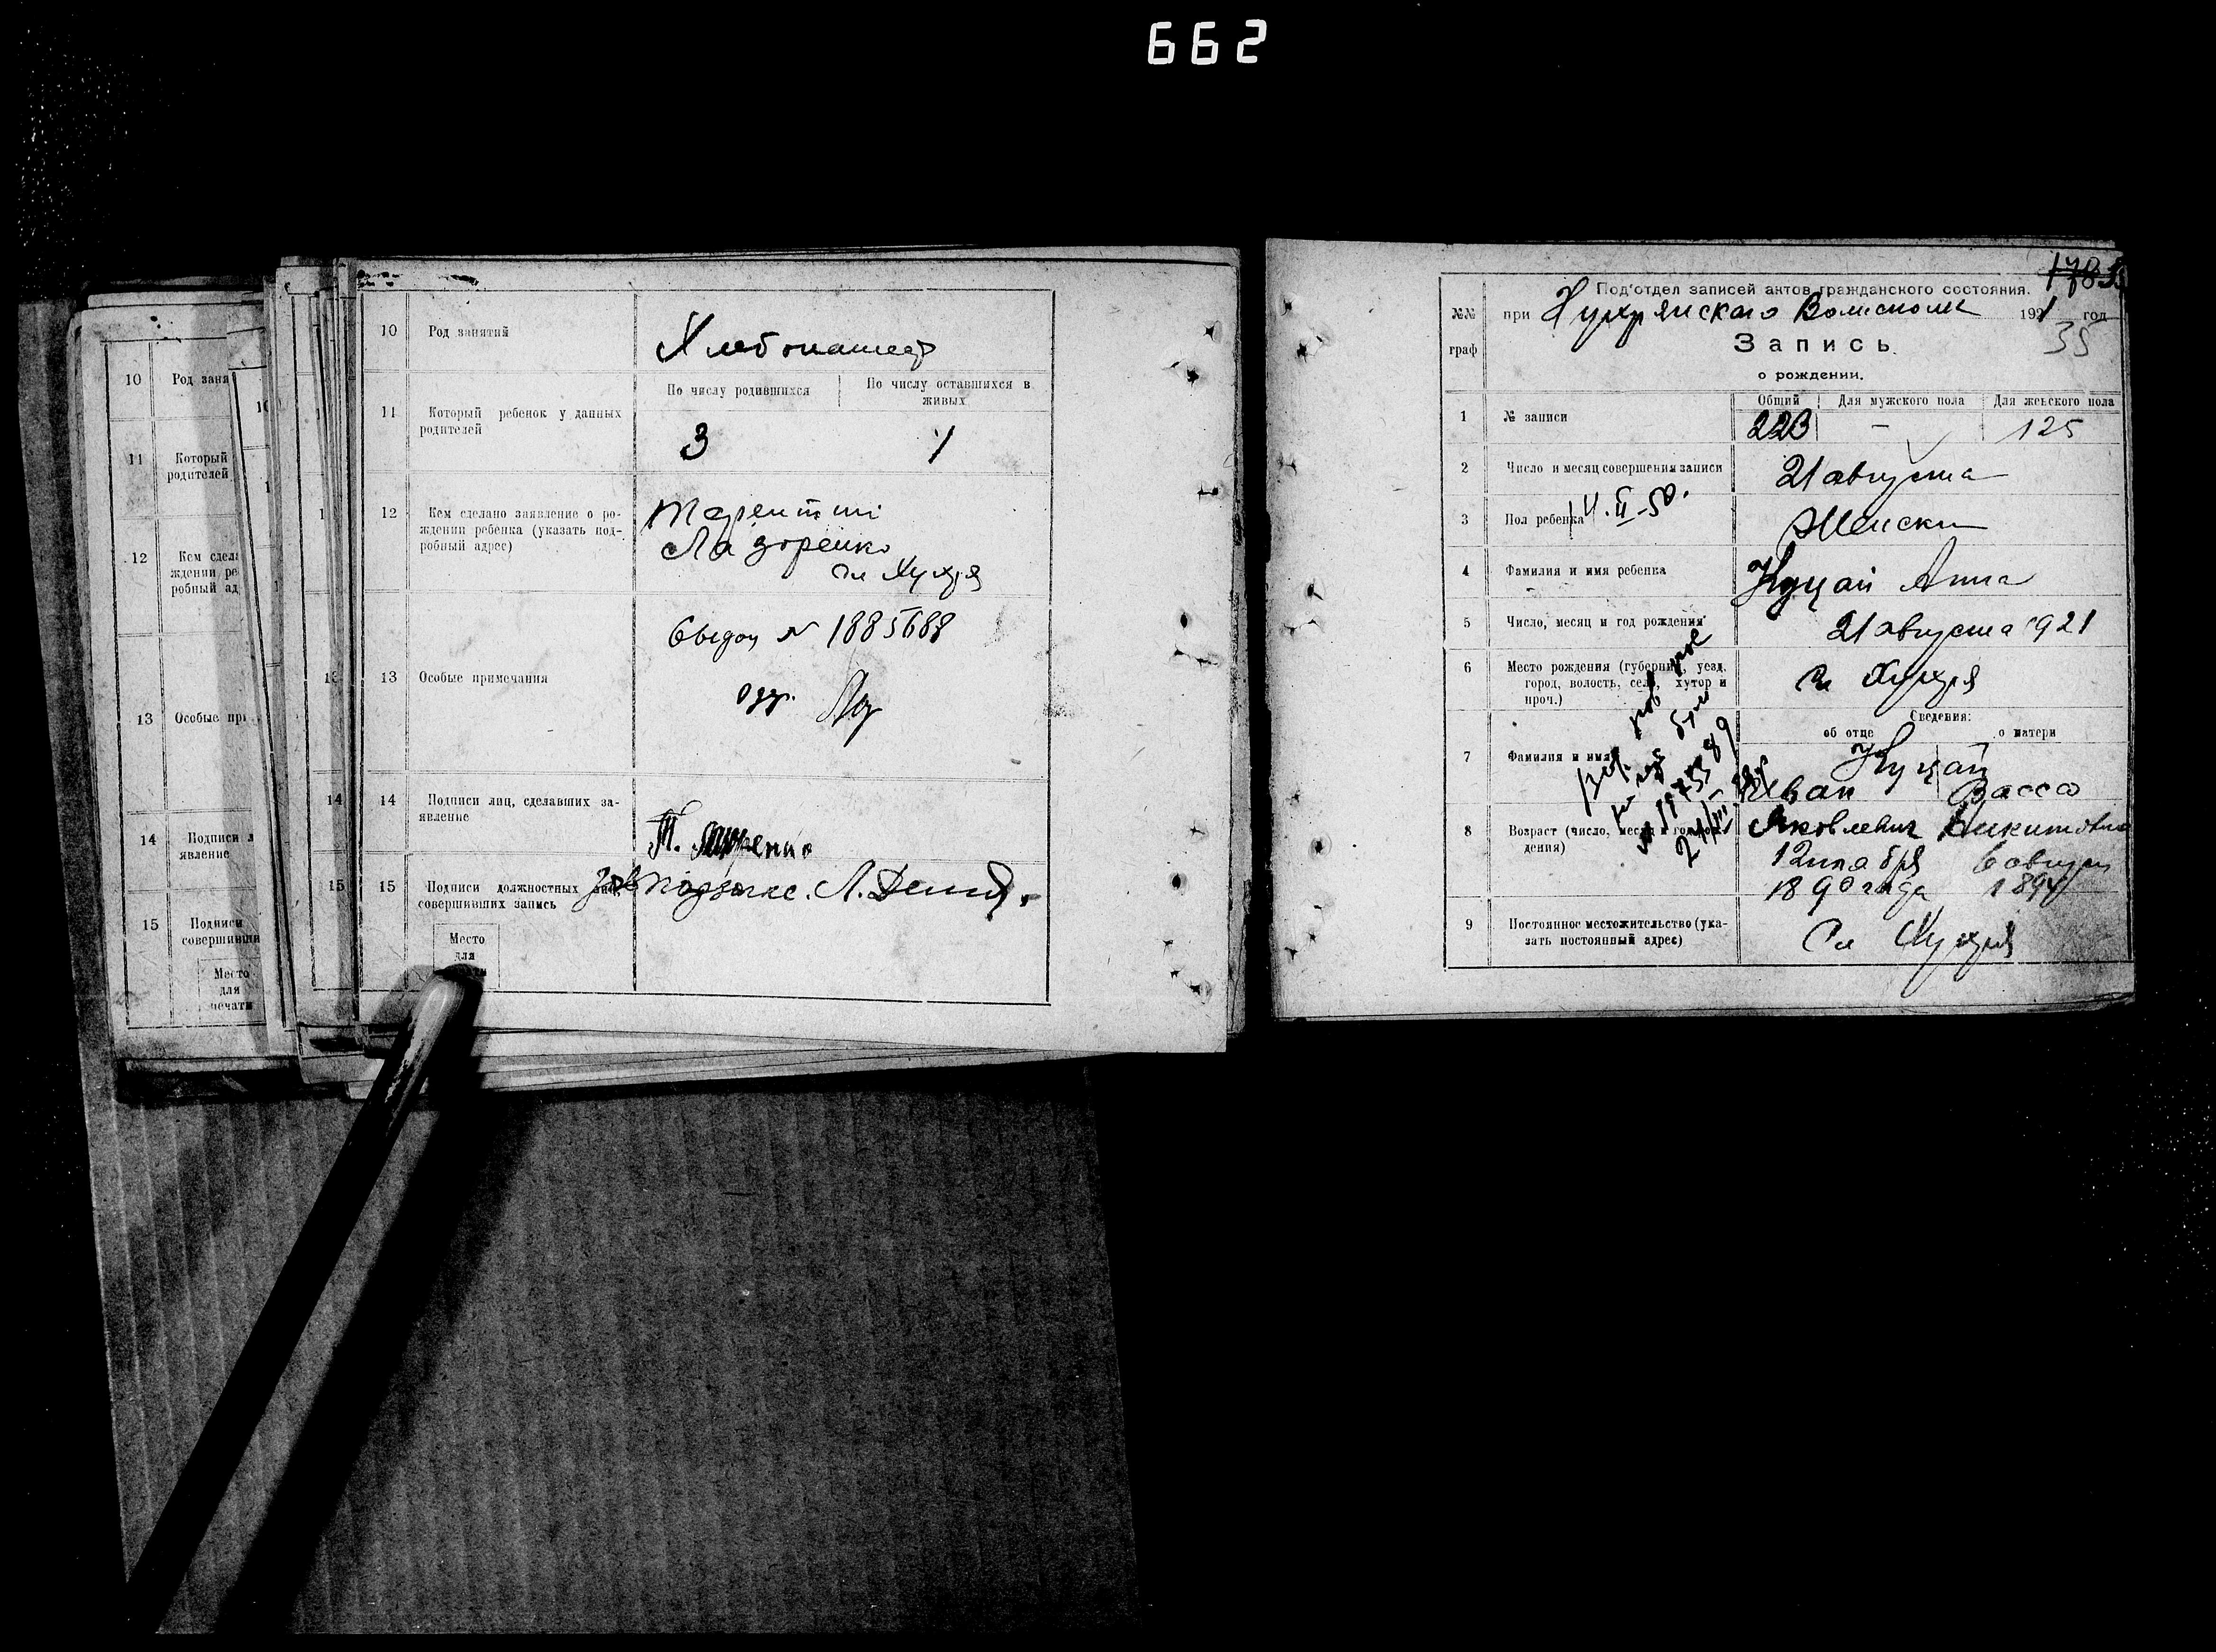 662
10 Род заня
11 Который
родителей
12 Кем сдела
ждении ре
робный ад
13 Особые при
14 Подписи л
явление
15 Подписи
совершивши
Место
для
печати
10 Род занятий
Хлебопашец
11 Который ребенок у данных
родителей
По числу родившихся
По числу оставшихся в
живых
3
1
12 Кем сделано заявление о ро-
ждении ребенка (указать под-
робный адрес)
Терентий
Лазоренко
Сл Хухря
13 Особые примечания
N 1885688
14 Подписи лиц, сделавших за-
явление
Т.
15 Подписи должностных лиц,
совершивших запись
Л.
Место
для
Под'отдел записей актов гражданского состояния.
№№
граф
при Хухрянского Волисполк 1921 год
35
Запись
о рождении.
1 № записи
Общий
Для мужского пола
Для женского пола
223
–
125
2 Число и месяц совершения записи
21 августа
3 Пол ребенка
14.II-50.
Женски
4 Фамилия и имя ребенка
Куцай Анна
5 Число, месяц и год рождения
21 августа 1921
6 Место рождения (губерния, уезд,
город, волость, село, хутор и
проч.)
Сл Хухря
7 Фамилия и имя
Сведения:
об отце
о матери
Куцай
Иван
Васса
8 Возраст (число, месяц и год рож-
дения)
Яковлевич Никитовна
6 август
1890 года 1894
9 Постоянное местожительство (ука-
зать постоянный адрес)
Сл Хухря